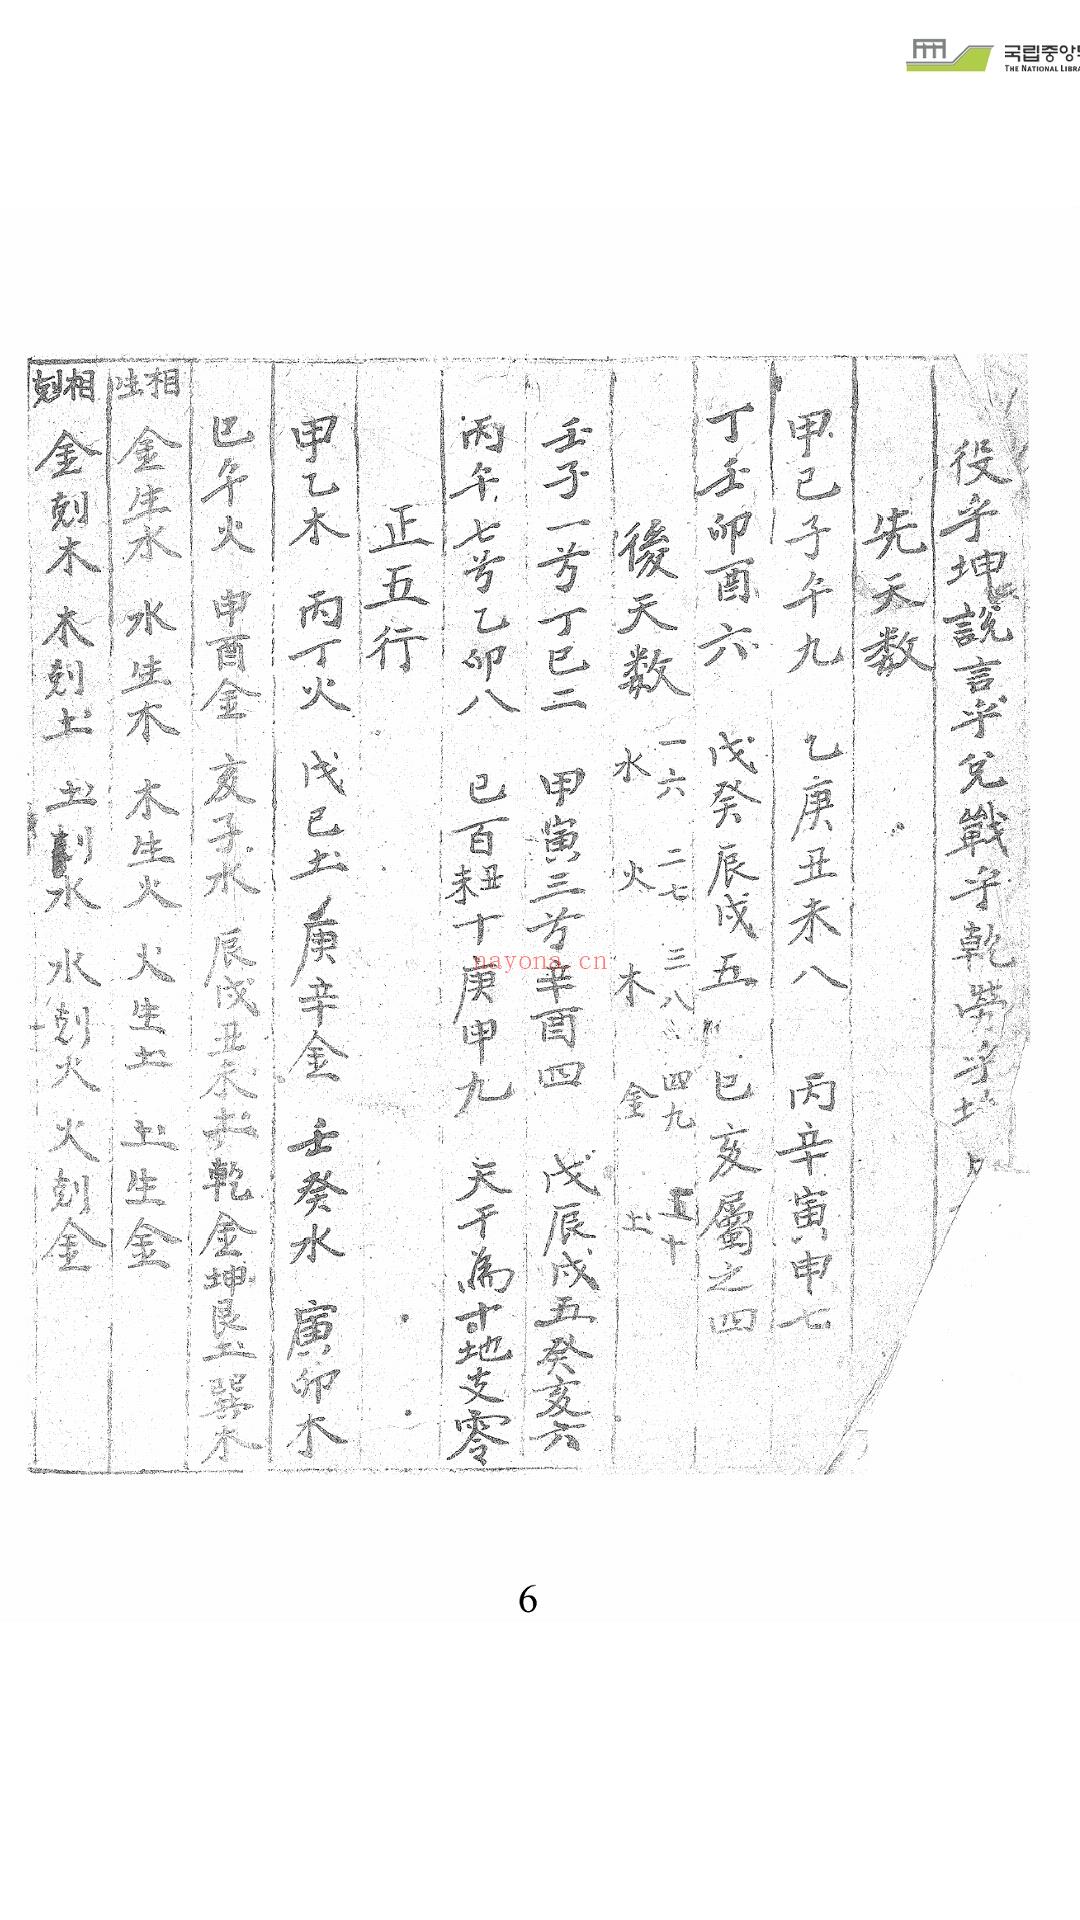 국립중앙
THE NATIONAL LIBRA
役乎坤說言乎兌戰乎乾勞乎坎
先天数
甲己子午九 乙庚丑未八 丙辛寅申七
丁壬卯酉六 戊癸辰戌五 巳亥屬之四
後天数 一六水 二七火 三八木 四九金 五十土
壬子一兮丁巳二 甲寅三兮辛酉四 戊辰戌五癸亥六
丙午七兮乙卯八 己百丑未十庚申九 天干為十地支零
正五行
甲乙木 丙丁火 戊己土 庚辛金 壬癸水 寅卯木
巳午火 申酉金 亥子水 辰戌丑未土 乾金坤艮土巽木
相生 金生水 水生木 木生火 火生土 土生金
相剋 金剋木 木剋土 土剋水 水剋火 火剋金
nayona.cn
6